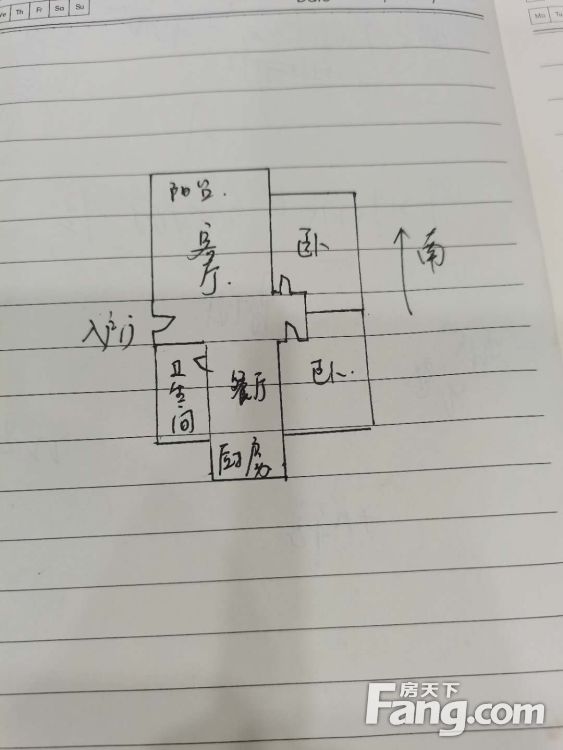 We Th Fr Sa Su
Mo Tu
阳台.
客厅.
卧
南
入户门
卫生间
餐厅
卧.
厨房
房天下
Fang.com